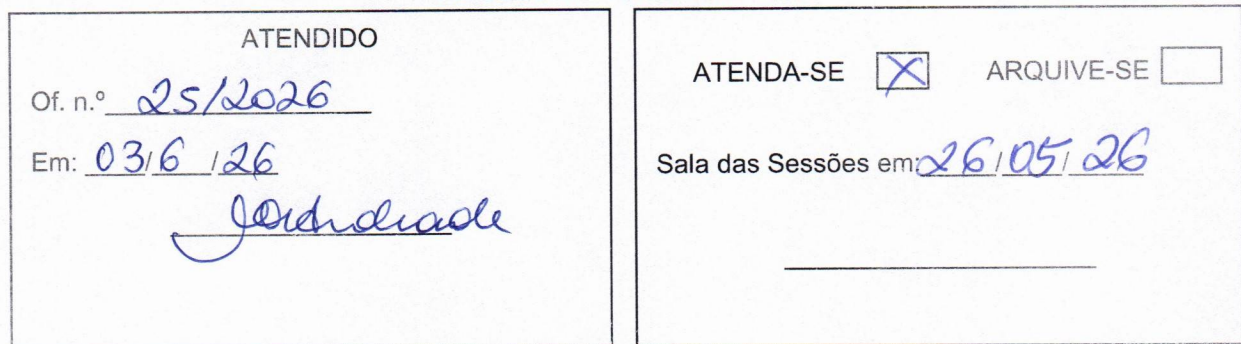 ATENDIDO
Of. n.º 25/2026
Em: 03/6/26
ATENDA-SE X ARQUIVE-SE
Sala das Sessões em: 26/05/26